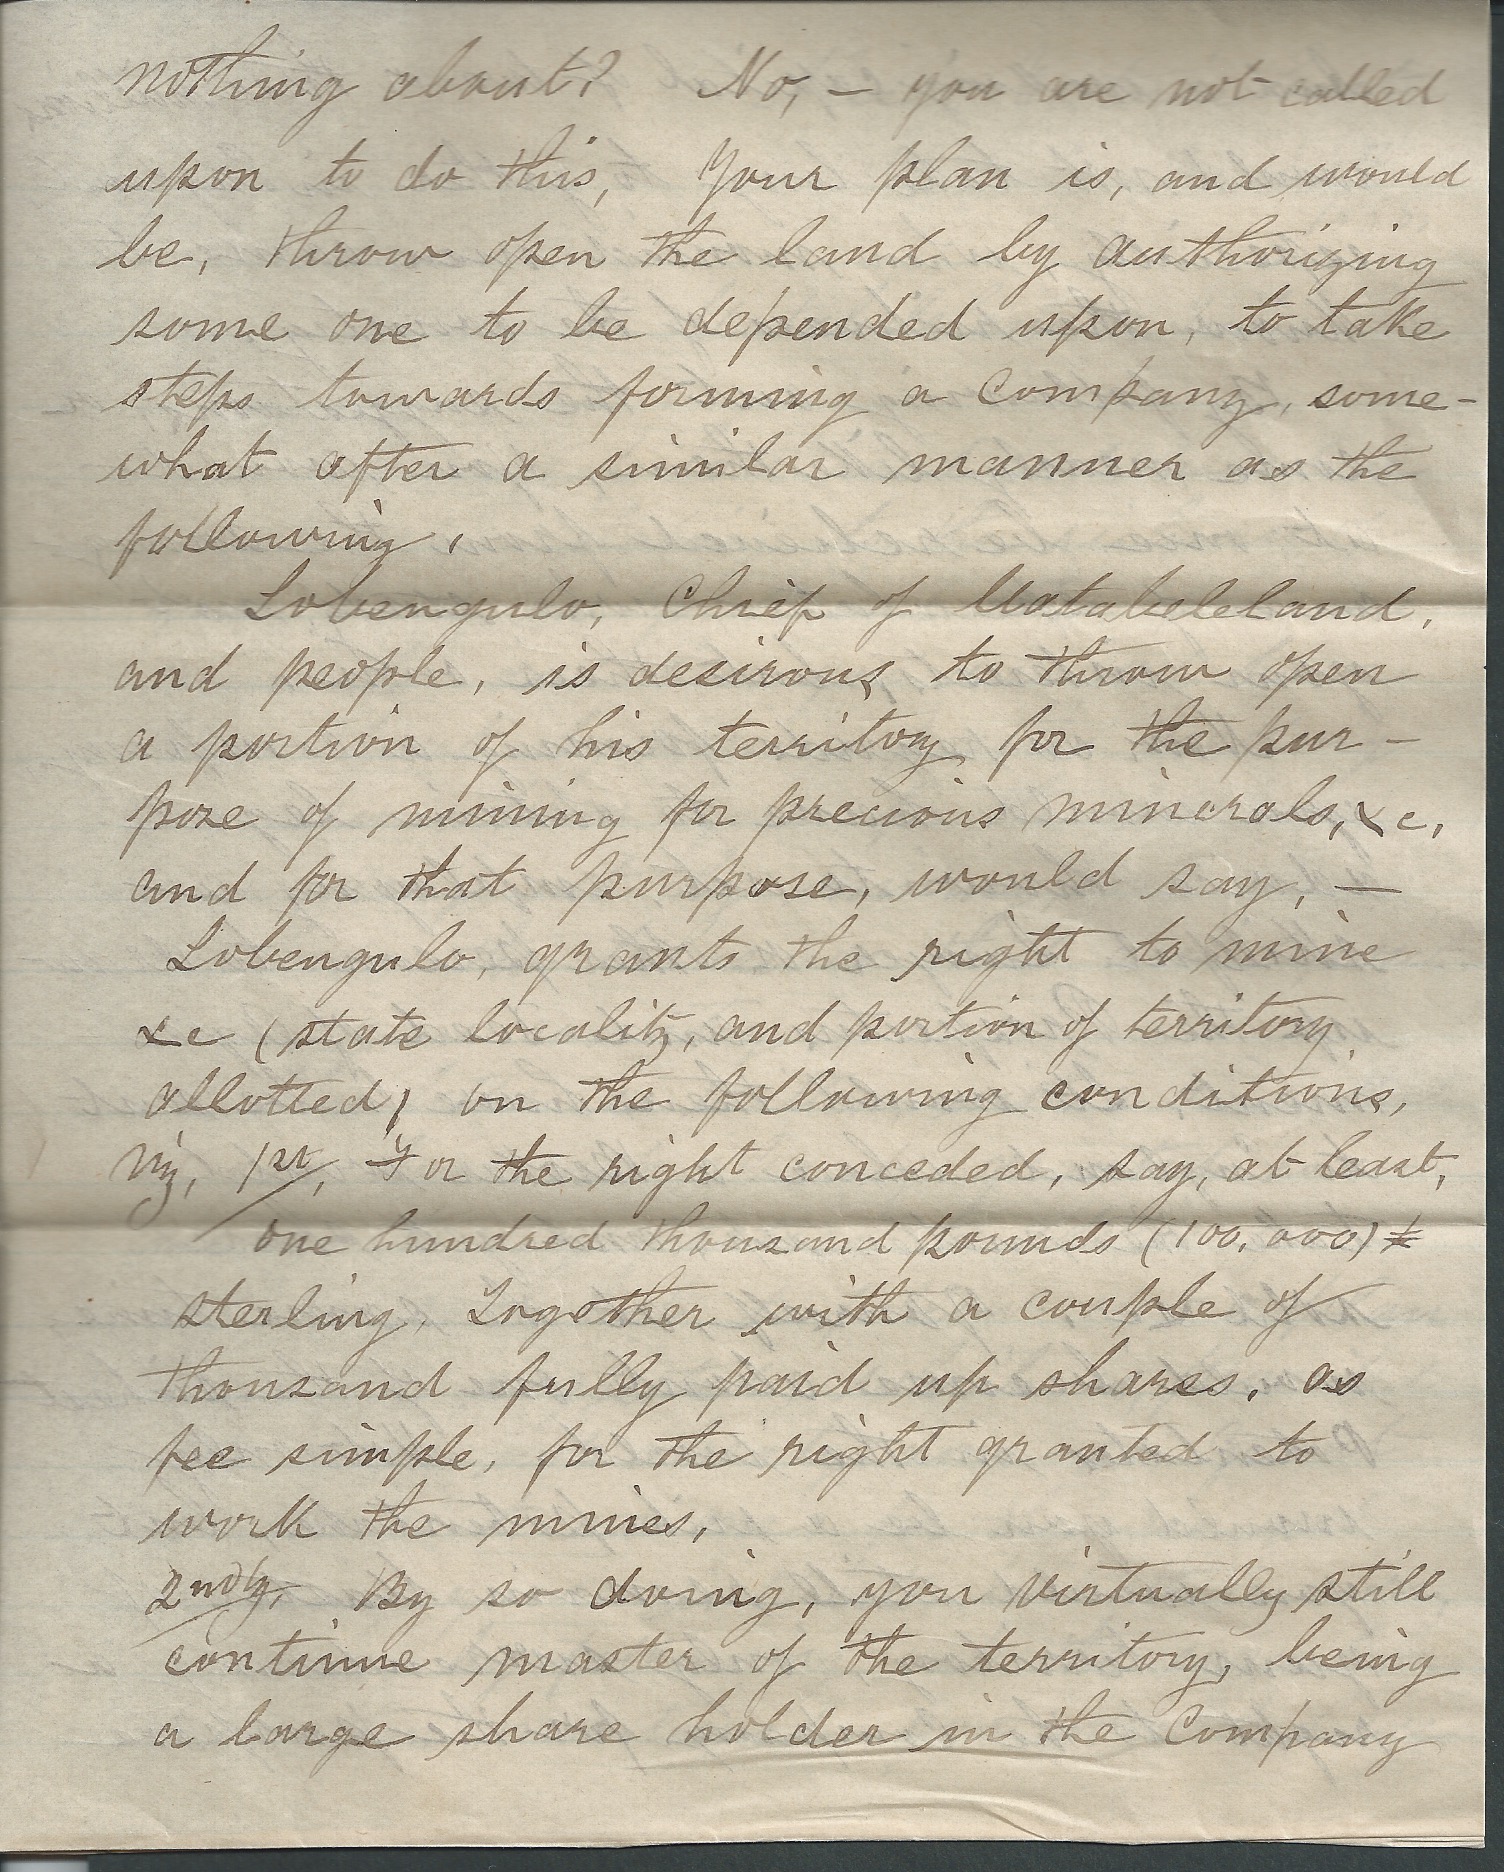 nothing about? No, – you are not called
upon to do this, Your plan is, and would
be, throw open the land by authorizing
some one to be depended upon, to take
steps towards forming a Company, some-
what after a similar manner as the
following,
Lobengulo, Chief of Matabeleland,
and people, is desirous to throw open
a portion of his territory for the pur-
pose of mining for precious minerals, &c,
and for that purpose, would say, –
Lobengulo, grants the right to mine
&c (state locality, and portion of territory
allotted) on the following conditions,
Viz, 1st, For the right conceded, say, at least,
one hundred thousand pounds (100,000) £
sterling, Together with a couple of
thousand fully paid up shares, as
fee simple, for the right granted to
work the mines,
2ndly, By so doing, you virtually still
continue master of the territory, being
a large share holder in the Company